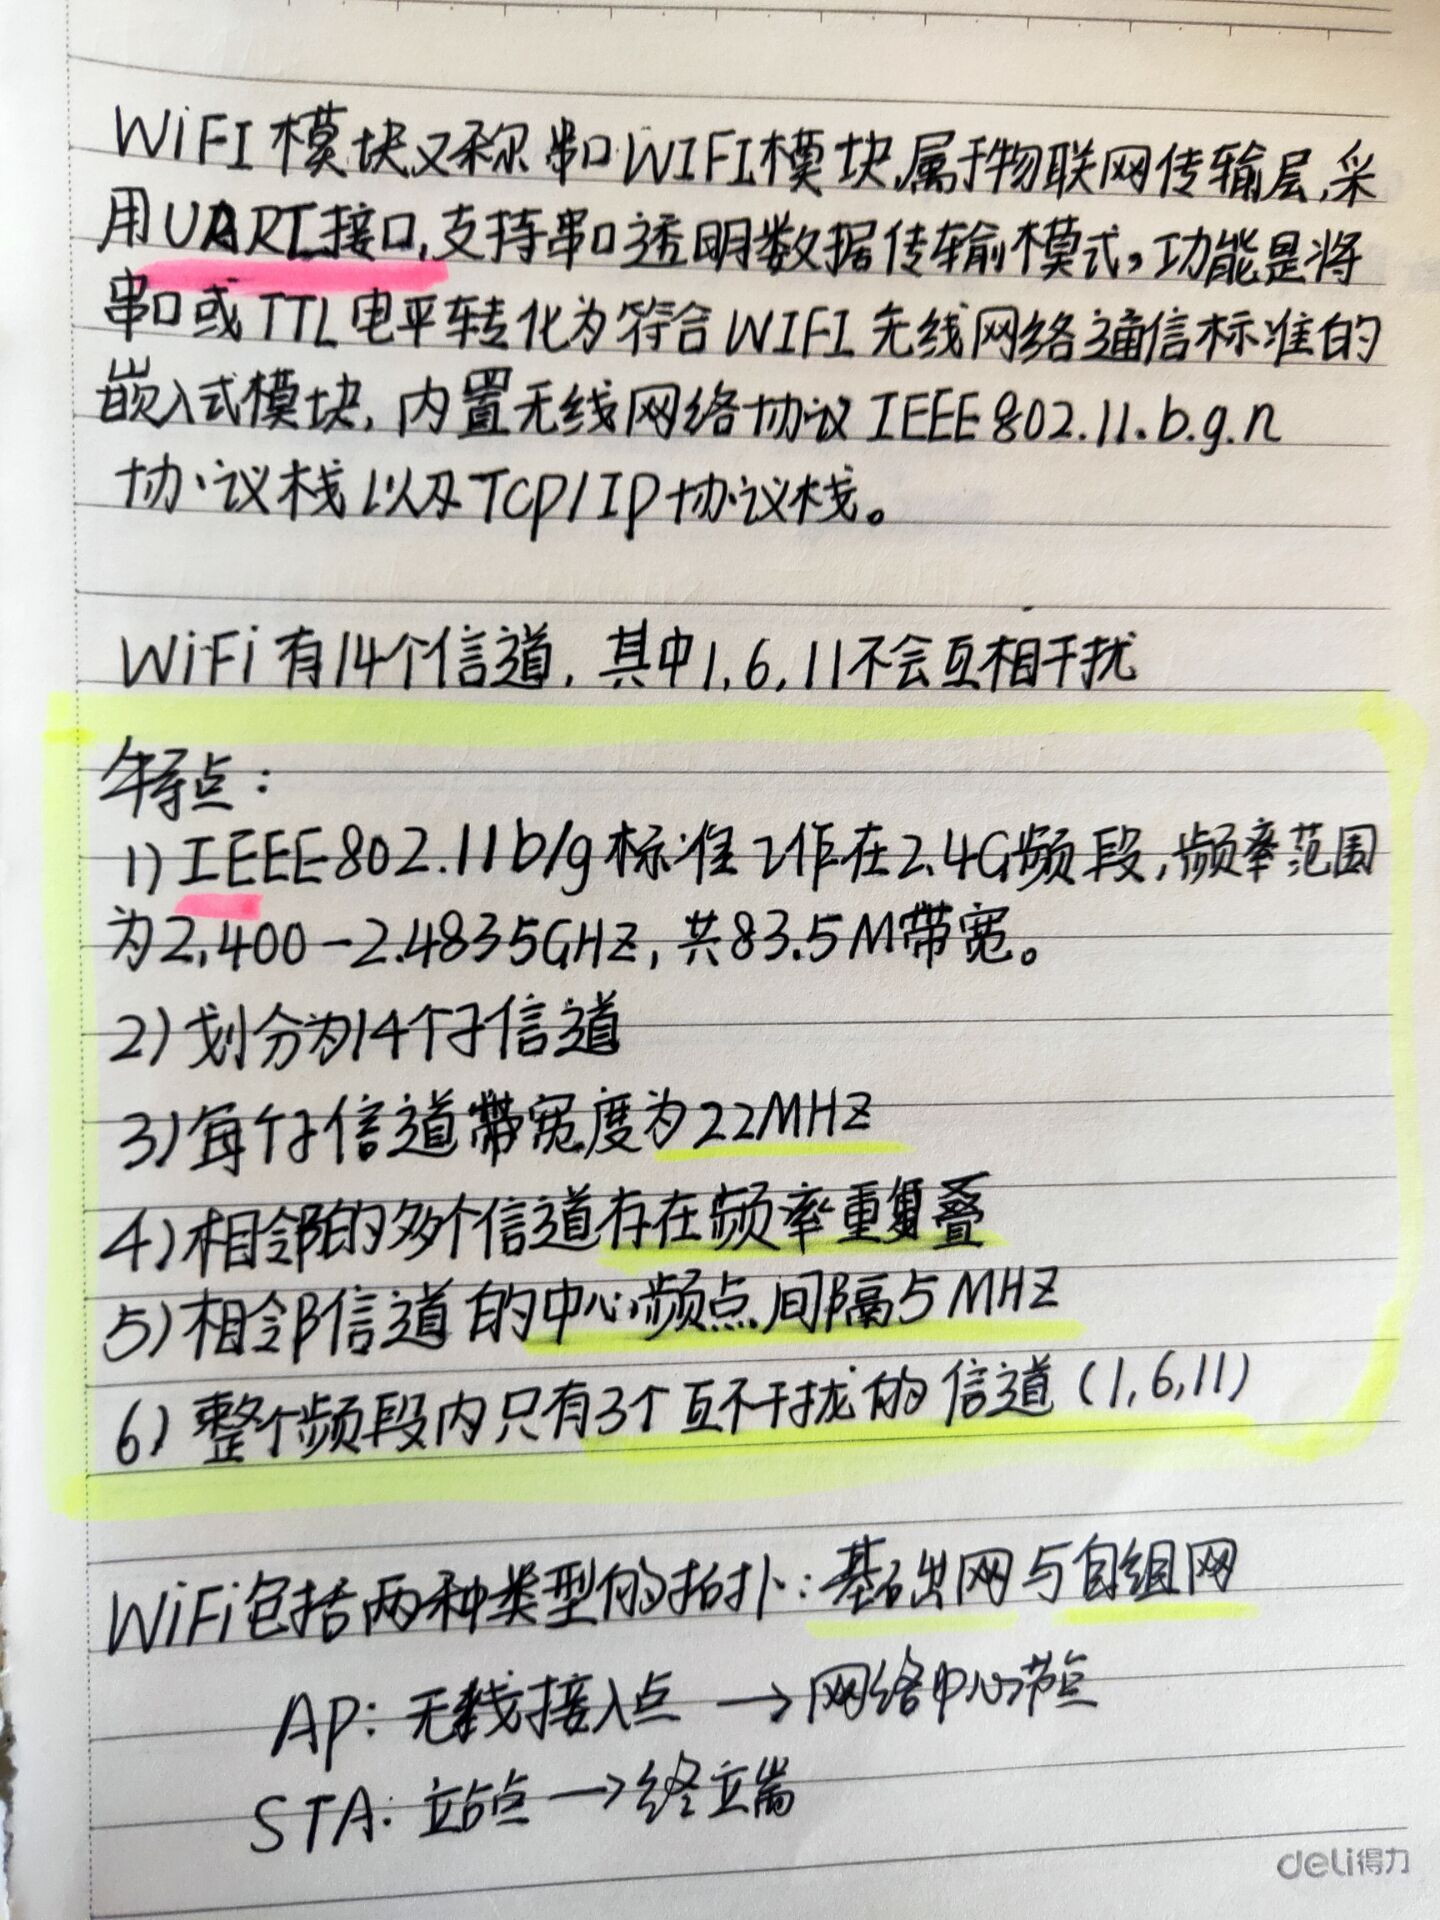 WiFI模块又称串口WIFI模块,属于物联网传输层,采
用UART接口,支持串口透明数据传输模式,功能是将
串口或TTL电平转化为符合WIFI无线网络通信标准的
嵌入式模块,内置无线网络协议IEEE802.11.b.g.n
协议栈以及TCP/IP协议栈。
WiFi有14个信道,其中1,6,11不会互相干扰
特点:
1)IEEE802.11b/g标准工作在2.4G频段,频率范围
为2.400-2.4835GHZ,共83.5M带宽。
2)划分为14个子信道
3)每个子信道带宽度为22MHZ
4)相邻的多个信道存在频率重复叠
5)相邻信道的中心频点间隔5MHZ
6)整个频段内只有3个互不干扰的信道(1,6,11)
WiFi包括两种类型的拓扑:基础网与自组网
AP:无线接入点→网络中心节点
STA:站点→终端
deli得力